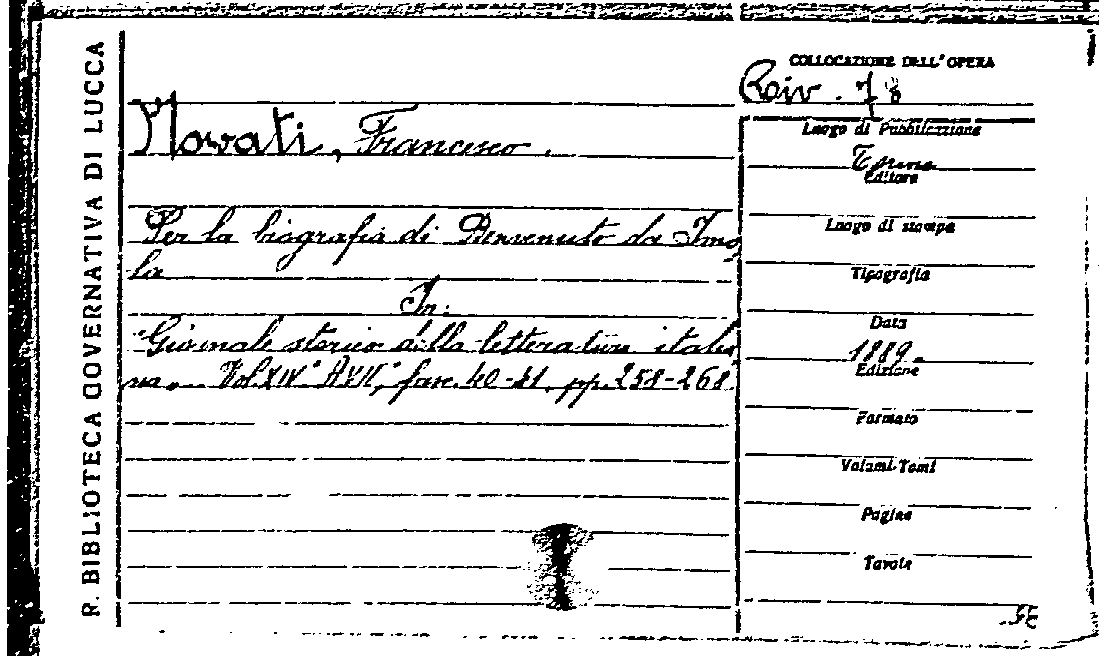 R. BIBLIOTECA GOVERNATIVA DI LUCCA
COLLOCAZIONE DELL'OPERA
Riv. 78
Novati, Francesco.
Luogo di Pubblicazione
Torino
Editore
Per la biografia di Benvenuto da Imo
la
Luogo di stampa
Tipografia
In:
Data
1889.
"Giornale storico della letteratura italia
na" Vol. XIV, fasc. 40-41. pp. 258-268.
Edizione
Formato
Volumi-Tomi
Pagine
Tavole